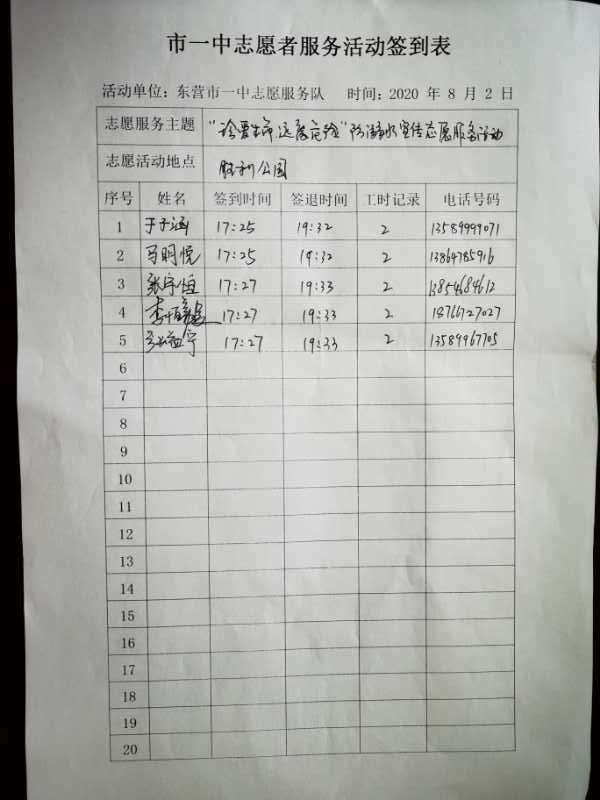 市一中志愿者服务活动签到表
活动单位：东营市一中志愿服务队 时间：2020 年 8 月 2 日
志愿服务主题 “珍爱生命，远离危险”防溺水宣传志愿服务活动
志愿活动地点 胜利公园
序号 姓名 签到时间 签退时间 工时记录 电话号码
1 于子涵 17:25 19:32 2 13589999071
2 马明悦 17:25 19:32 2 13864785916
3 张宇恒 17:27 19:33 2 13854684612
4 17:27 19:33 2 18766727027
5 17:27 19:33 2 13589967705
6
7
8
9
10
11
12
13
14
15
16
17
18
19
20